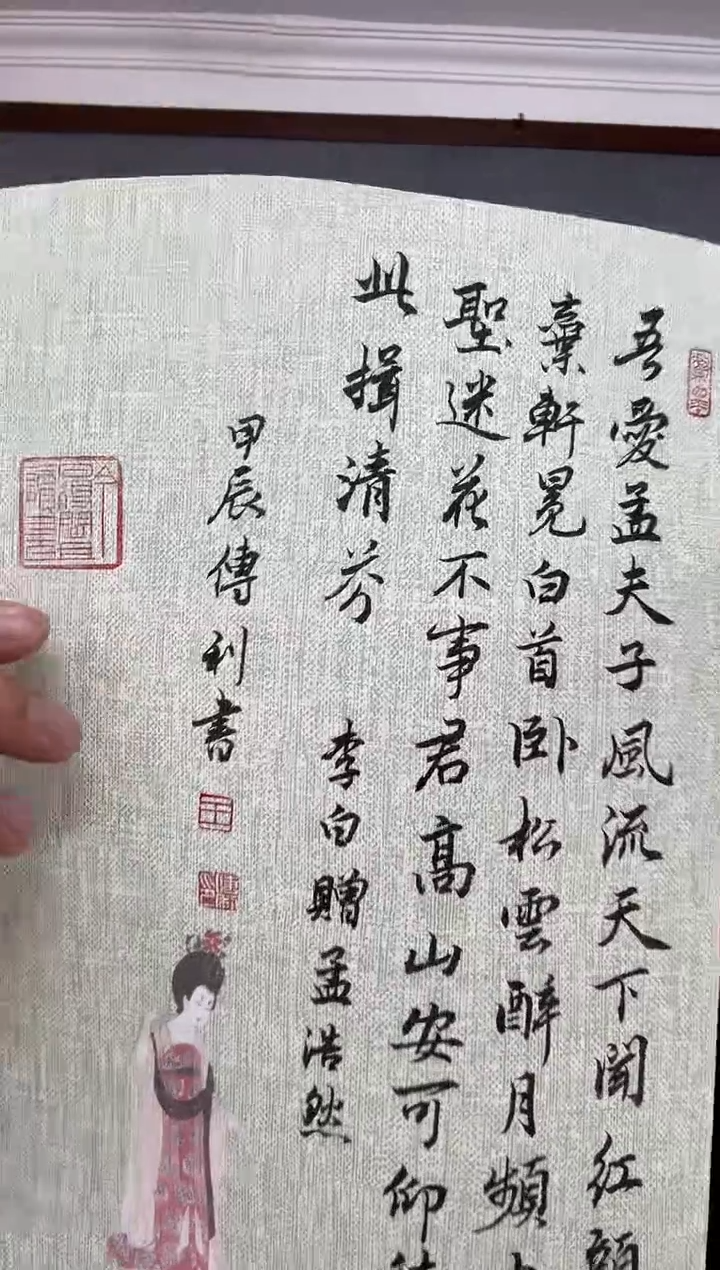 吾愛孟夫子風流天下聞紅顏
棄軒冕白首卧松雲醉月頻
聖迷花不事君高山安可仰
此揖清芬
李白贈孟浩然
甲辰傳利書